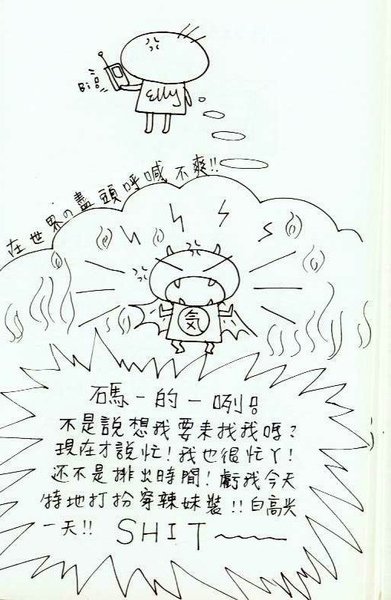 Bi
Elly
在世界の盡頭呼喊不爽!!
気
碼-的-咧!!
不是說想我要来找我嗎?
現在才說忙!我也很忙丫!
还不是排出時間!虧我今天
特地打扮穿辣妹裝!!白高光
一天!!
SHIT~